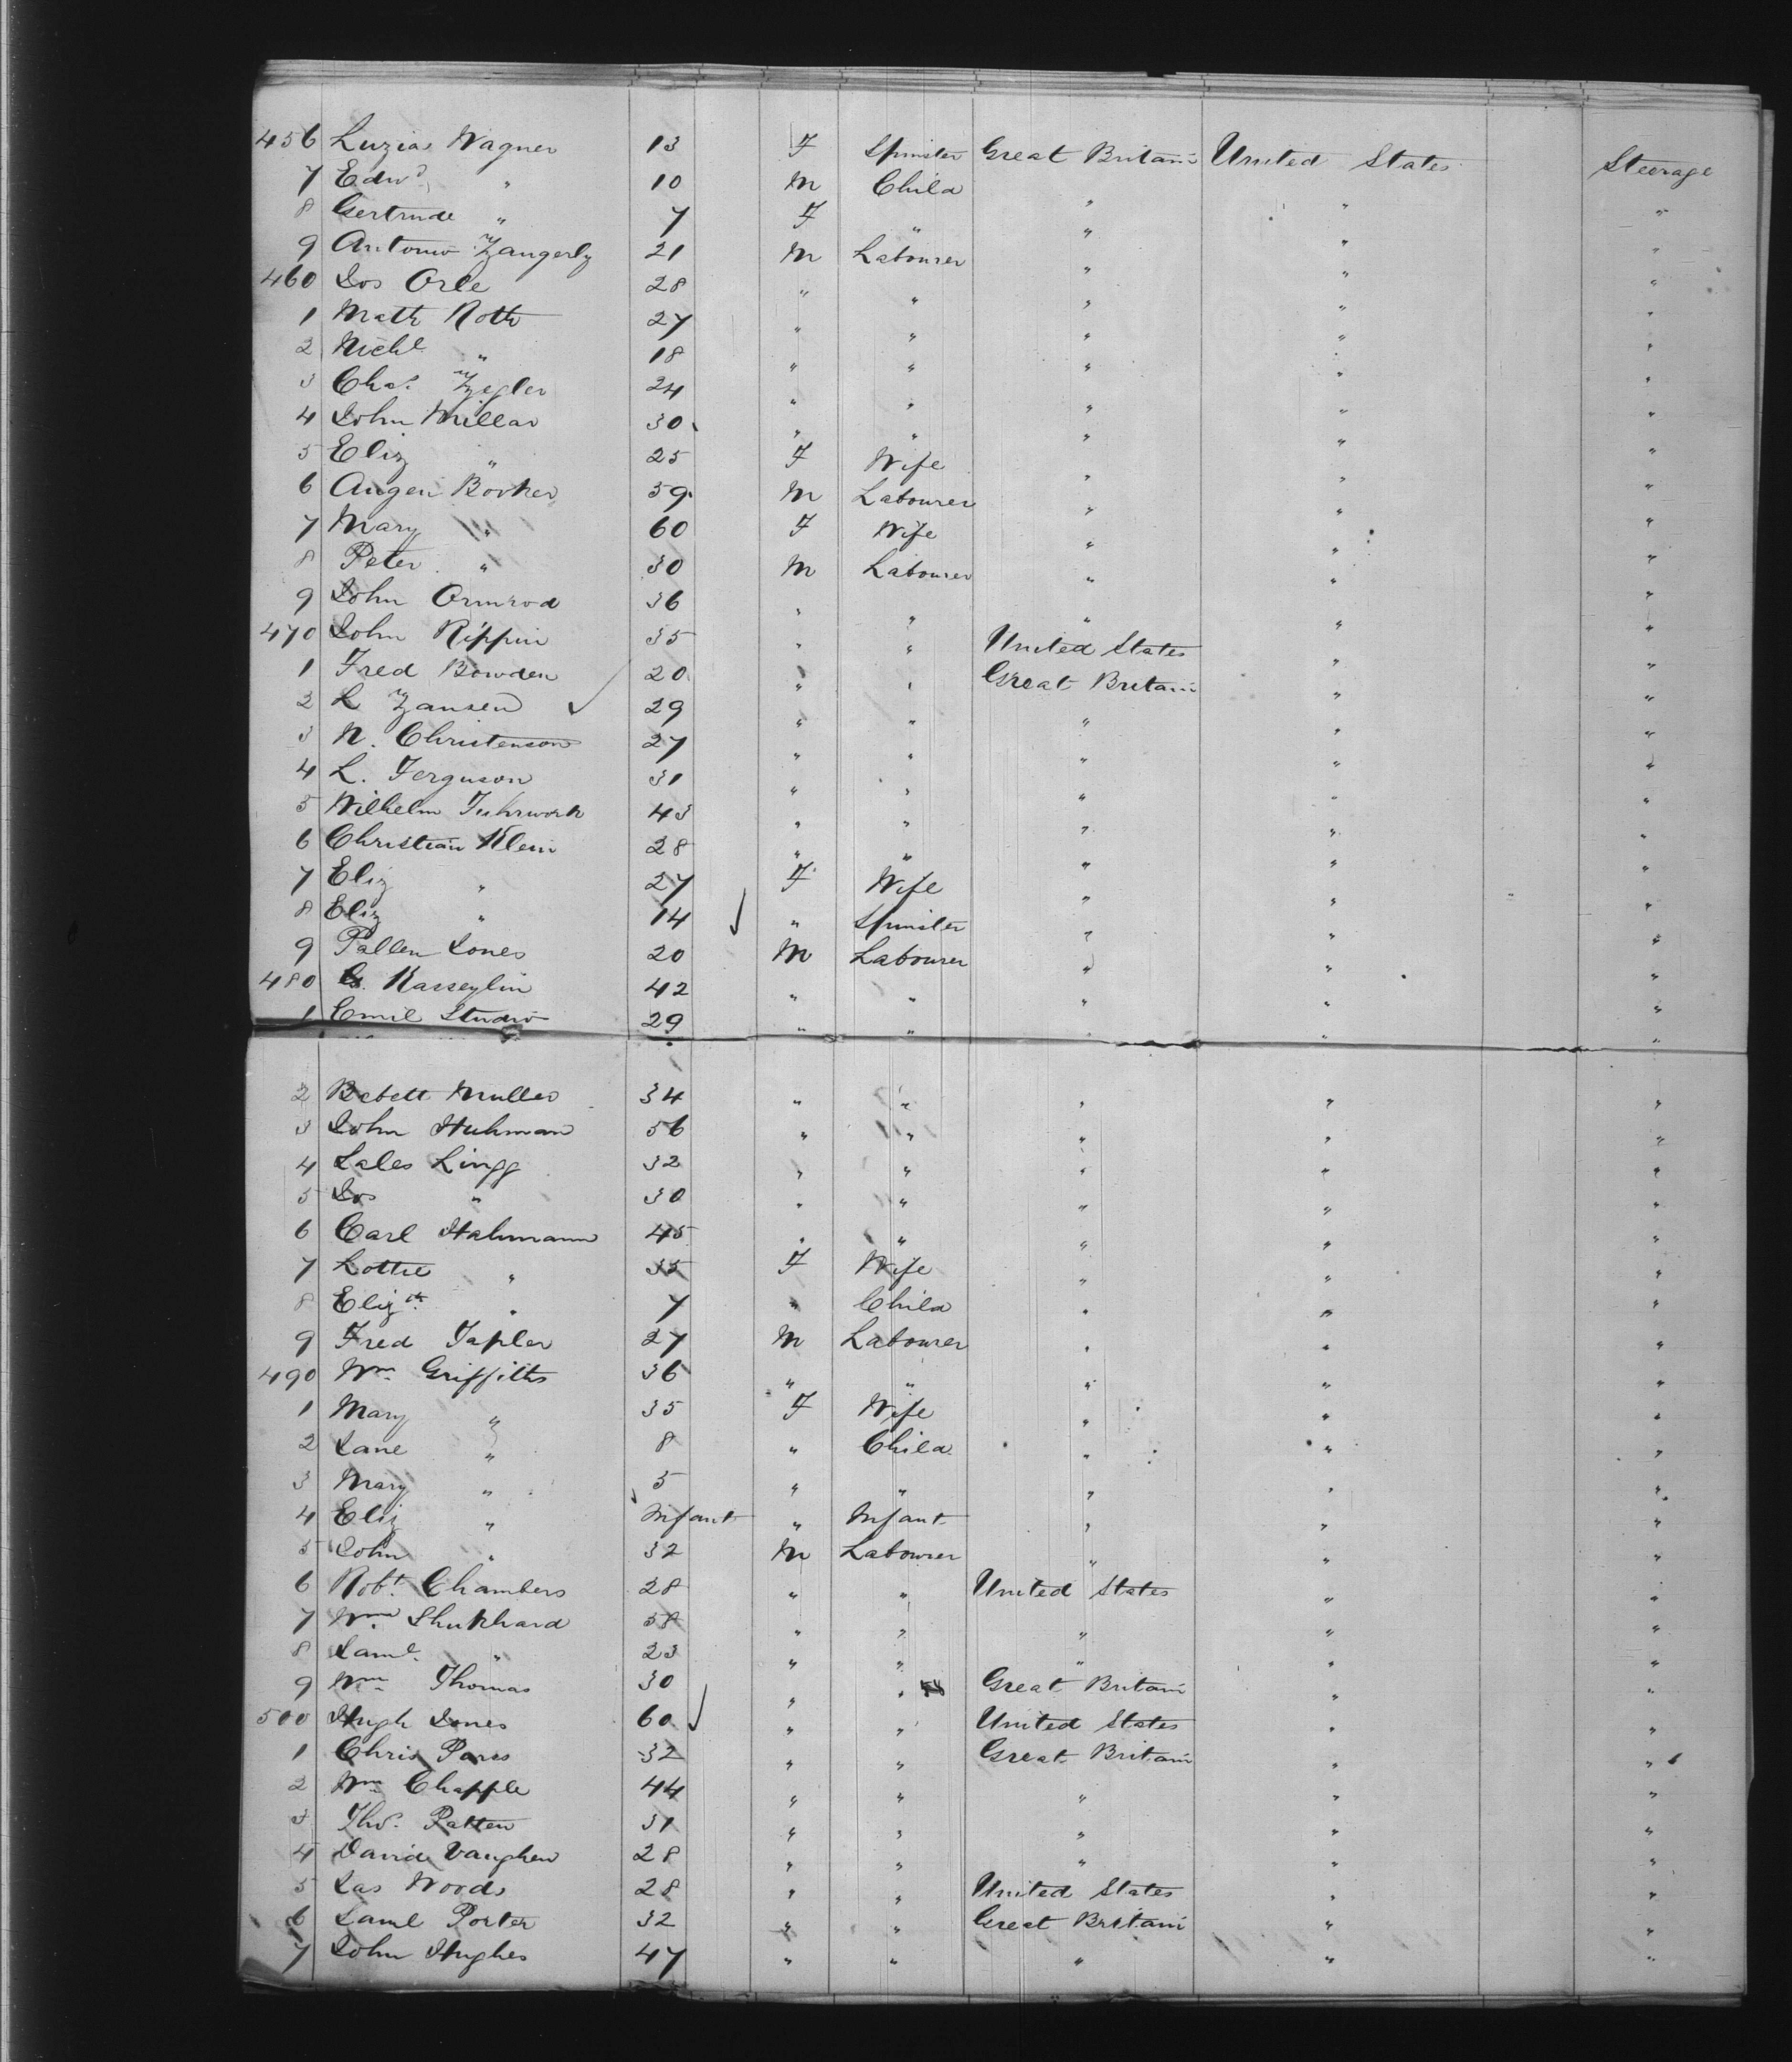 456 Luzia Wagner 13 F Spinster Great Britain United States Steerage
7 Edwd " 10 M Child " " "
8 Gertrude " 7 F " " " "
9 Antonio Zangerly 21 M Labourer " " "
460 Jos Orle 28 " " " " "
1 Math Roth 27 " " " " "
2 Nichl " 18 " " " " "
3 Chas. Zegler 24 " " " " "
4 John Millar 30 " " " " "
5 Eliz " 25 F Wife " " "
6 Augen Borker 59 M Labourer " " "
7 Mary " 60 F Wife " " "
8 Peter " 30 M Labourer " " "
9 John Ormrod 36 " " " " "
470 John Rippin 35 " " United States " "
1 Fred Bowden 20 " " Great Britain " "
2 L Zansen 29 " " " " "
3 N. Christenson 27 " " " " "
4 L. Ferguson 31 " " " " "
5 Wilhelm Fuhrwork 43 " " " " "
6 Christian Klein 28 " " " " "
7 Eliz " 27 F Wife " " "
8 Eliz " 14 " Spinster " " "
9 Pallen Jones 20 M Labourer " " "
480 Kasseylin 42 " " " " "
1 Emil Studio 29 " " " " "
2 Bebett Muller 34 " " " " "
3 John Huhman 56 " " " " "
4 Lingg 32 " " " " "
5 Jos " 30 " " " " "
6 Carl Hahmann 45 " " " " "
7 Lottie " 35 F Wife " " "
8 Elizth " 7 " Child " " "
9 Fred Tapler 27 M Labourer " " "
490 Wm Griffiths 36 " " " " "
1 Mary " 35 F Wife " " "
2 Jane " 8 " Child " " "
3 Mary " 5 " " " " "
4 Eliz " Infant " Infant " " "
5 John " 32 M Labourer " " "
6 Robt. Chambers 28 " " United States " "
7 Wm Shukhard 58 " " " " "
8 Saml. " 23 " " " " "
9 Wm Thomas 30 " " Great Britain " "
500 Hugh Jones 60 " " United States " "
1 Chris Parrs 32 " " Great Britain " "
2 Wm Chapple 44 " " " " "
3 Thos. Patten 31 " " " " "
4 David Vaughen 28 " " " " "
5 Jas Woods 28 " " United States " "
6 Saml Porter 32 " " Great Britain " "
7 John Hughes 47 " " " " "